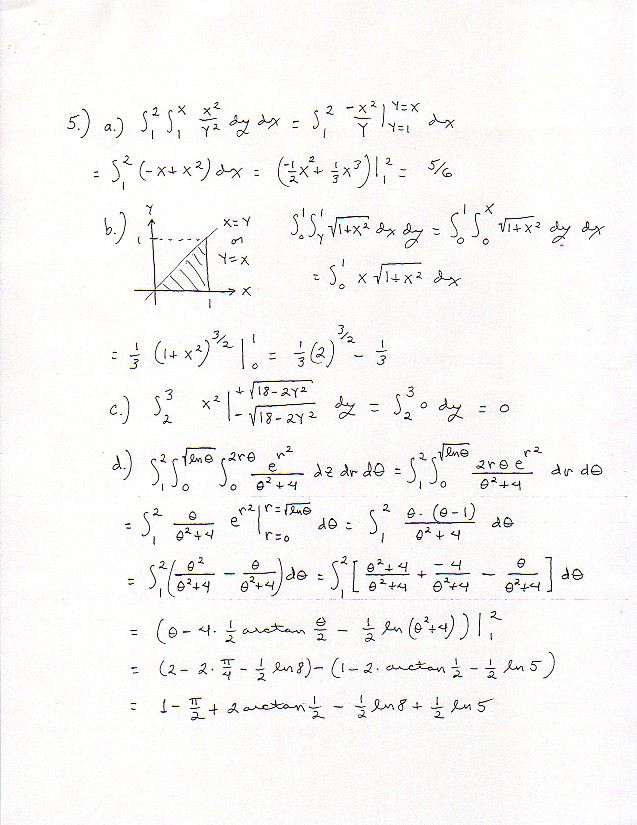 5.) a.) ∫₁² ∫₁ˣ x²/y² dy dx = ∫₁² -x²/y |_{y=1}^{y=x} dx
= ∫₁² (-x + x²) dx = (-1/2 x² + 1/3 x³)|₁² = 5/6
b.) y 1 x=y or y=x x 1 ∫₀¹ ∫_y¹ √(1+x²) dx dy = ∫₀¹ ∫₀ˣ √(1+x²) dy dx
= ∫₀¹ x √(1+x²) dx
= 1/3 (1+x²)^{3/2} |₀¹ = 1/3 (2)^{3/2} - 1/3
c.) ∫₂³ x² |_{-√(18-2y²)}^{+√(18-2y²)} dy = ∫₂³ 0 dy = 0
d.) ∫₁² ∫₀^{√(ln θ)} ∫₀^{2rθ} e^{r²}/(θ²+4) dz dr dθ = ∫₁² ∫₀^{√(ln θ)} 2rθ e^{r²}/(θ²+4) dr dθ
= ∫₁² θ/(θ²+4) e^{r²} |_{r=0}^{r=√(ln θ)} dθ = ∫₁² θ·(θ-1)/(θ²+4) dθ
= ∫₁² (θ²/(θ²+4) - θ/(θ²+4)) dθ = ∫₁² [(θ²+4)/(θ²+4) + -4/(θ²+4) - θ/(θ²+4)] dθ
= (θ - 4·1/2 arctan θ/2 - 1/2 ln(θ²+4)) |₁²
= (2 - 2·π/4 - 1/2 ln 8) - (1 - 2·arctan 1/2 - 1/2 ln 5)
= 1 - π/2 + 2 arctan 1/2 - 1/2 ln 8 + 1/2 ln 5